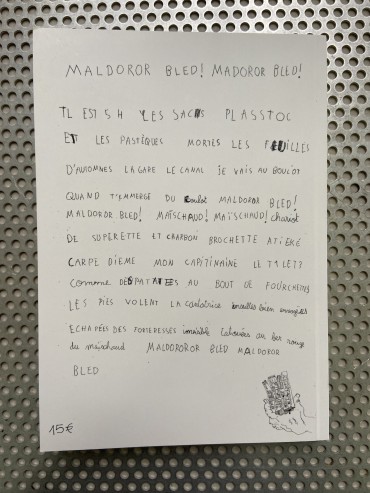 MALDOROR BLED! MADOROR BLED!
IL EST 5 H LES SACS PLASSTOC
ET LES PASTÈQUES MORTES LES FEUILLES
D'AUTOMNES LA GARE LE CANAL JE VAIS AU BOULOT
QUAND DU boulot MALDOROR BLED!
MALDOROR BLED! MAÏSCHAUD! MAÏSCHAUD! chariot
DE SUPERETTE ET CHARBON BROCHETTE ATIÉKÉ
CARPE DIEME MON CAPITINAINE LE
comome PATATES AU BOUT DE FOURCHETTES
LES PIES VOLENT LA cantatrice bien
ECHAPÉES DES FORTERESSES au bec rouge
du maïschaud MALDOROROR BLED MALDOROR
BLED
15€